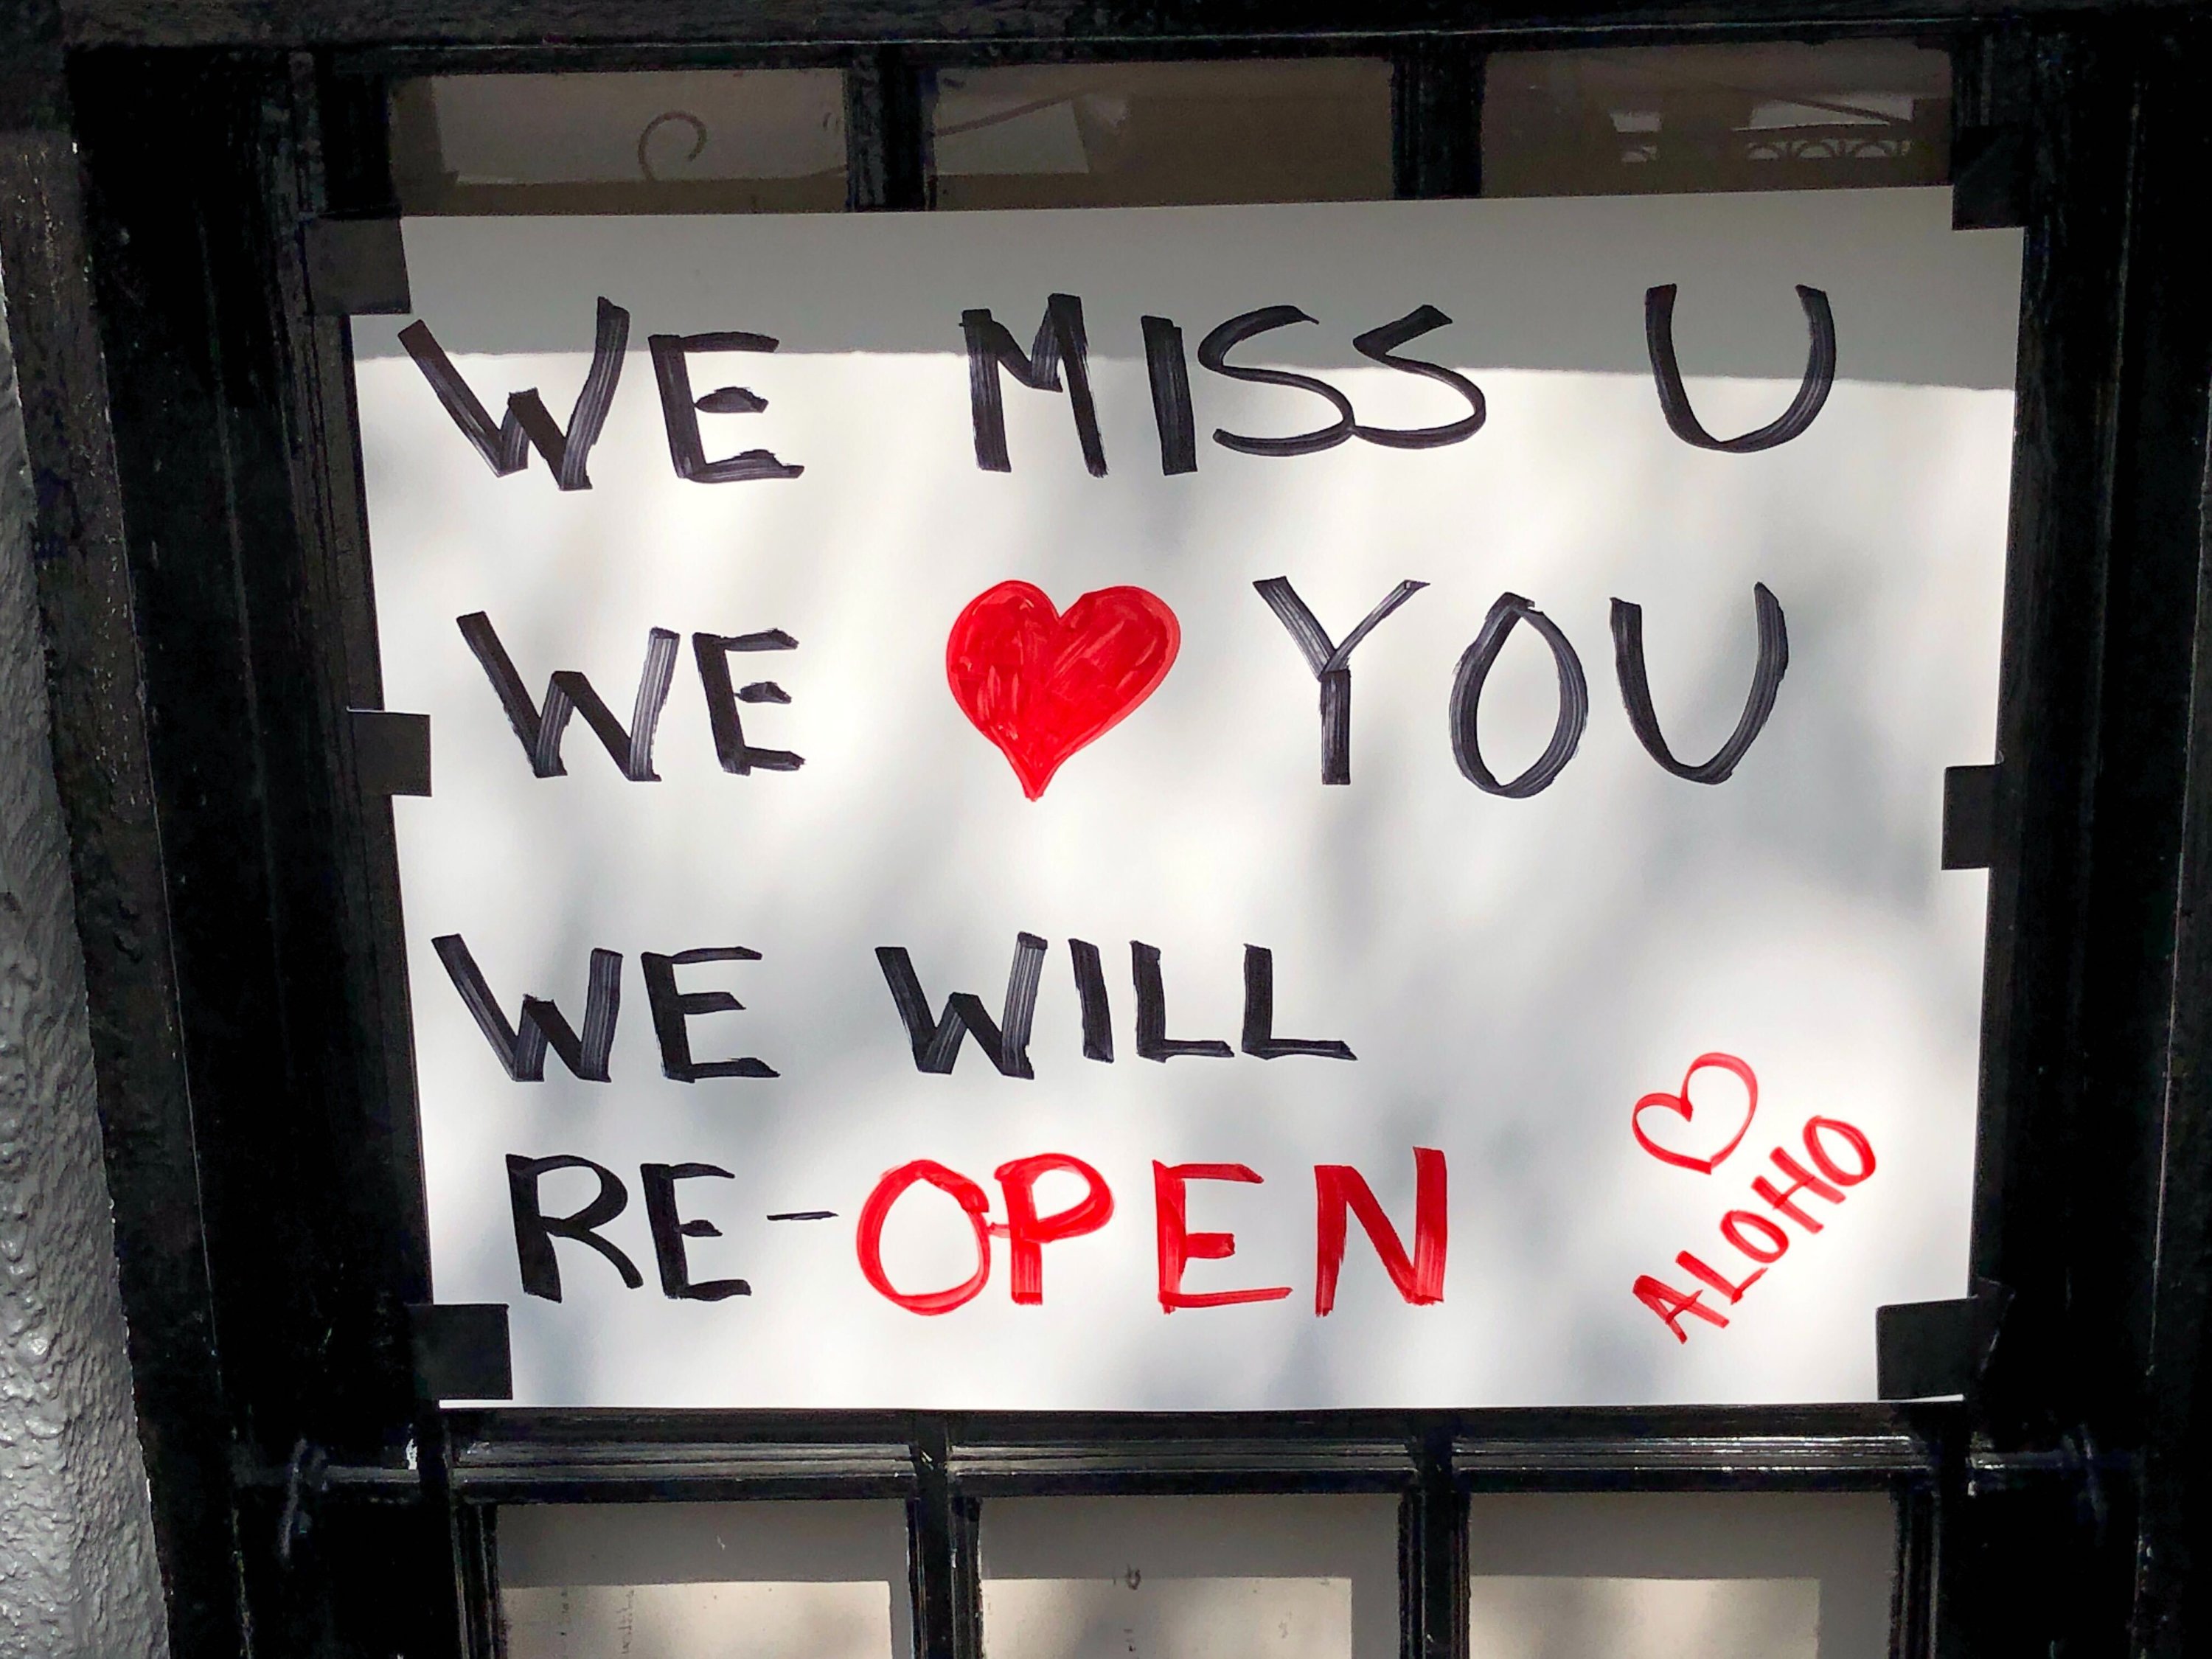 WE MISS U
WE ❤ YOU
WE WILL
RE-OPEN
♡
ALOHO